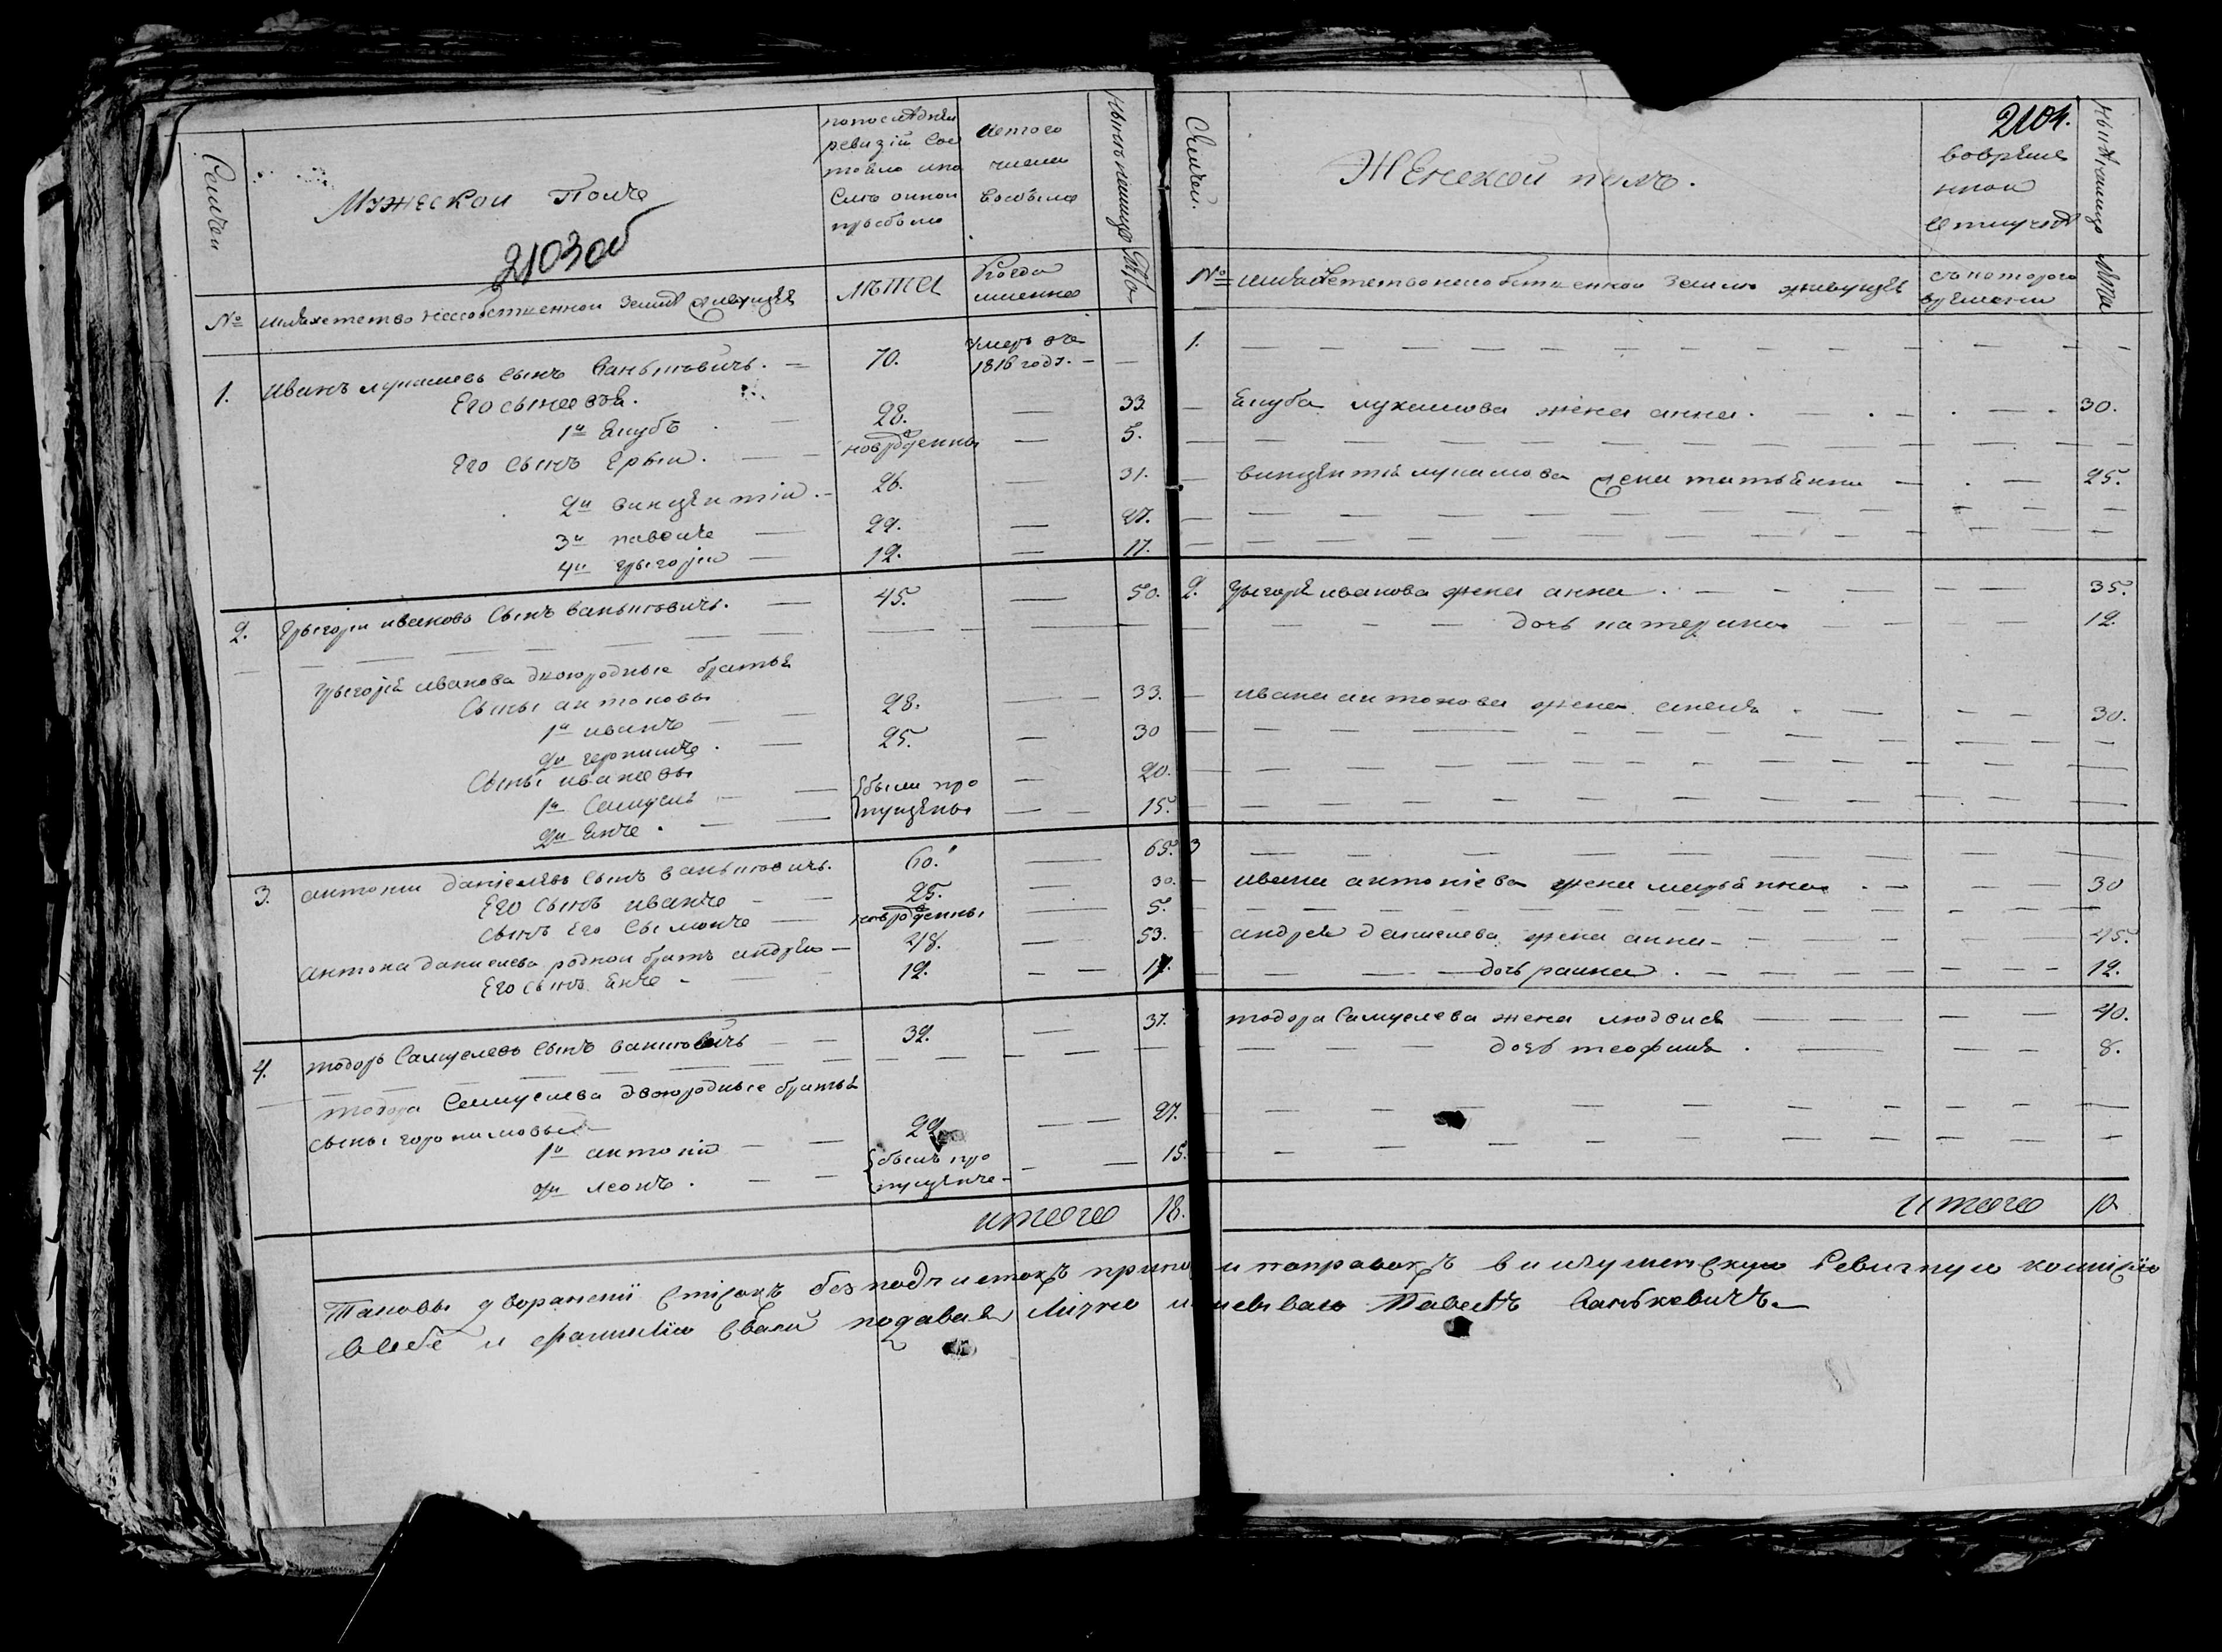 Семьи
Мужескои Полъ
2103об
попоследнеи
ревизіи сос
тояло ипо
слѣ оннои
прыбыло
Изтого
числа
выбыло
Нынѣ налицо
Лѣта
№ шляхетство нассобственнои землѣ живущее
лѣта
Когда
именно
1. Иванъ лукашевъ сынъ Ваньковичъ. — 70. умеръ в
1816 годѣ. —
Его сыновя.
1й Якубъ — 28. — 33
Его сынъ Ерыи. — новрожденны — 5.
2й винцентіи. — 26. — 31.
3й павелъ — 22. — 27.
4й грыгорiи — 12. — 17.
2. грыгорiи ивановъ Сынъ Ваньковичъ. — 45. — 50.
грыгорiя иванова двоюродные братья
Сыны антоновы
1й иванъ — 28. — 33.
2й геронимъ. — 25. — 30
Сыны ивановы
1й Самуель — были про — 20.
2й Янъ. — пущены — 15.
3. антонiи данiелевъ сынъ ваньковичъ. 60. — 65.
Его сынъ иванъ — 25. — 30.
сынъ Его Сымонъ — новрожденны — 5.
антона даниелева роднои братъ андреи — 48. — 53.
Его сынъ Янъ — 12. — 17.
4. тодоръ Самуелевъ сынъ ванковичъ — 32. — 37.
тодора Самуелева двоюродные братья
сыны геронимовы —
1й антонiй — 22. — 27.
2й леонъ. — былъ про — 15.
пущенъ —
итого 18.
Семьи.
Женскои полъ.
2104.
вовреме
ннои
отлучкѣ
Нынѣ налицо
Лѣта
№ шляхетство насобственнои землѣ живущее
съ котораго
времени
1.
— Якуба лукашова жена анна. — 30.
— винцентiя лукашова жена татьянна — 25.
2. грыгорiя иванова жена анна. — 35.
дочь катерина — 12.
— ивана антонова жена анеля. — 30.
3
— ивана антонiева жена марьянна. — 30
андрея даниелева жена анна — 45.
— дочь раина. — 12.
тодора Самуелева жена людвися — 40.
дочь теофиля. — 8.
итого 10
Таковы дворански списокъ без подчистокъ и поправокъ в игуменскую Ревизную комисiю
и фамилiю своей подавая лично Павелъ Ваньковичъ. —